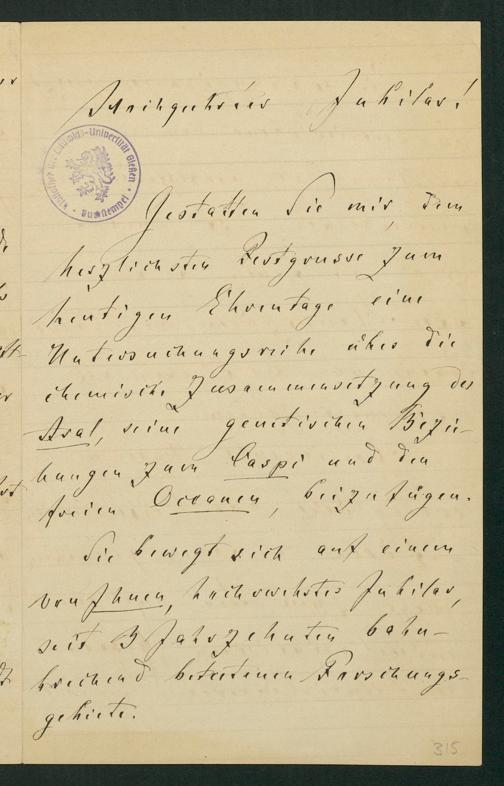 Hochgeehrter Jubilar!
Gestatten Sie mir, dem
herzlichsten Festgrusse zum
heutigen Ehrentage eine
Untersuchungsreihe über die
chemische Zusammensetzung des
Aral, seine genetischen Bezie-
hungen zum Caspi und den
freien Oceanen, beizufügen.
Sie bewegt sich auf einem
von Ihnen, hochverehrter Jubilar,
seit 3 Jahrzehnten bahn-
brechend betretenen Forschungs-
gebiete.
Ludwigs-Universität Gießen
315